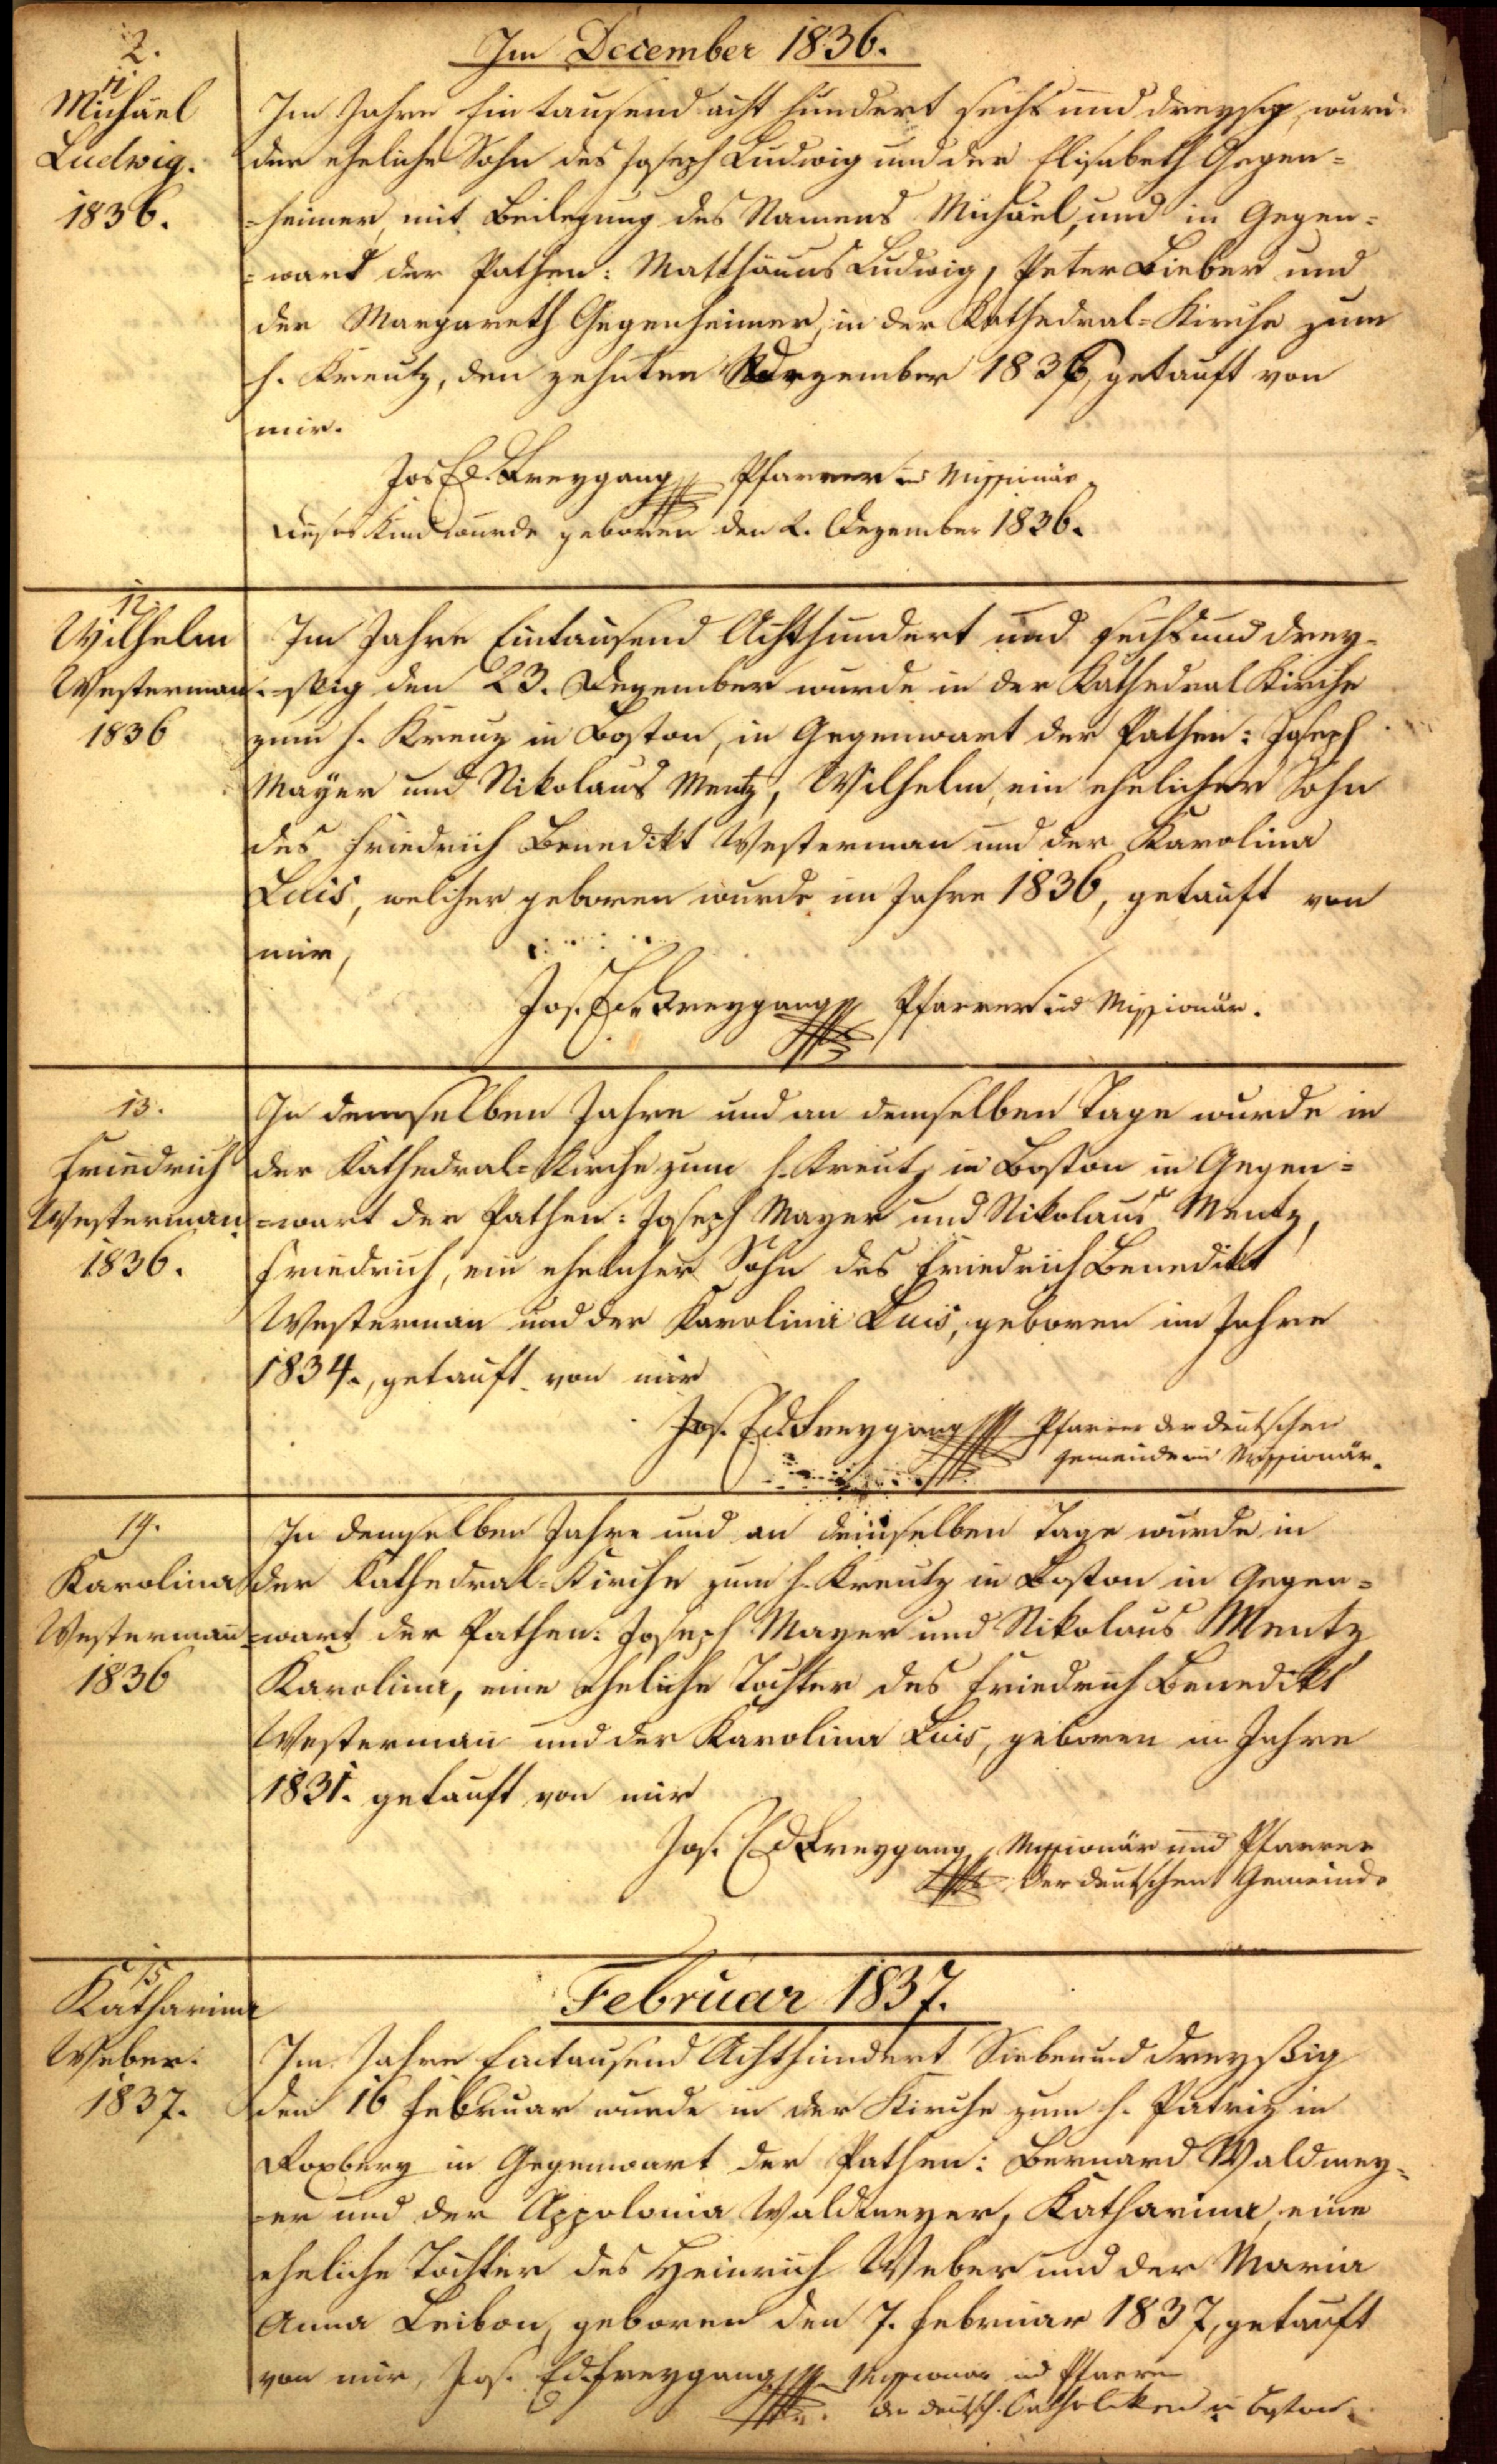 2.
Im December 1836.
11
Michael
Ludwig.
1836.
Im Jahre Ein tausend acht hundert sechs und dreysig, wurde
der eheliche Sohn des Joseph Ludwig und der Elisabeth Gegen=
=heimer, mit Beilegung des Namens Michael, und in Gegen=
=ward der Pathen: Matthäus Ludwig, Peter Bieber und
der Margareth Gegenheimer, in der Kathedral=Kirche zum
h. Kreutz, den zehnten Dezember 1836, getauft von
mir.
Jos. Ed. Freygang Pfarrer und Missionär.
Dieses Kind wurde geboren den 2. Dezember 1836.
12.
Wilhelm
Westerman.
1836
Im Jahre Eintausend Achthundert und sechs und drey-
-ßig den 23. Dezember wurde in der Kathedral Kirche
zum h. Kreuz in Boston, in Gegenwart der Pathen: Joseph
Mayer und Nikolaus Mentz, Wilhelm, ein ehelicher Sohn
des Friedrich Benedikt Westerman und der Karolina
Luis, welcher geboren wurde im Jahre 1836, getauft von
mir,
Jos. Ed. Freygang Pfarrer und Missionär.
13.
Friedrich
Westerman.
1836.
In demselben Jahre und an demselben Tage wurde in
der Kathedral=Kirche zum h. Kreutz in Boston in Gegen=
=wart der Pathen: Joseph Mayer und Nikolaus Mentz,
Friedrich, ein ehelicher Sohn des Friedrich Benedikt
Westerman und der Karolina Luis, geboren im Jahre
1834., getauft von mir
Jos. Ed. Freygang Pfarrer der deutschen
Gemeinde und Missionär.
14.
Karolina
Westerman
1836
In demselben Jahre und an demselben Tage wurde in
der Kathedral=Kirche zum h. Kreutz in Boston in Gegen=
=wart der Pathen: Joseph Mayer und Nikolaus Mentz
Karolina, eine eheliche Tochter des Friedrich Benedikt
Westerman und der Karolina Luis, geboren im Jahre
1831. getauft von mir
Jos. Ed Freygang, Missionär und Pfarrer
der deutschen Gemeinde
15
Katharina
Weber.
1837.
Februar 1837.
Im Jahre Eintausend Achthundert Sieben und dreyßig
den 16 Februar wurde in der Kirche zum h. Patriz in
Roxberg in Gegenwart der Pathen: Bernard Waldmey-
-er und der Appolonia Waldmeyer, Katharina, eine
eheliche Tochter des Heinrich Weber und der Maria
Anna Leibon, geboren den 7. Februar 1837, getauft
von mir, Jos. Ed. Freygang Missionär und Pfarrer
der deutsch. Catholiken in Boston.